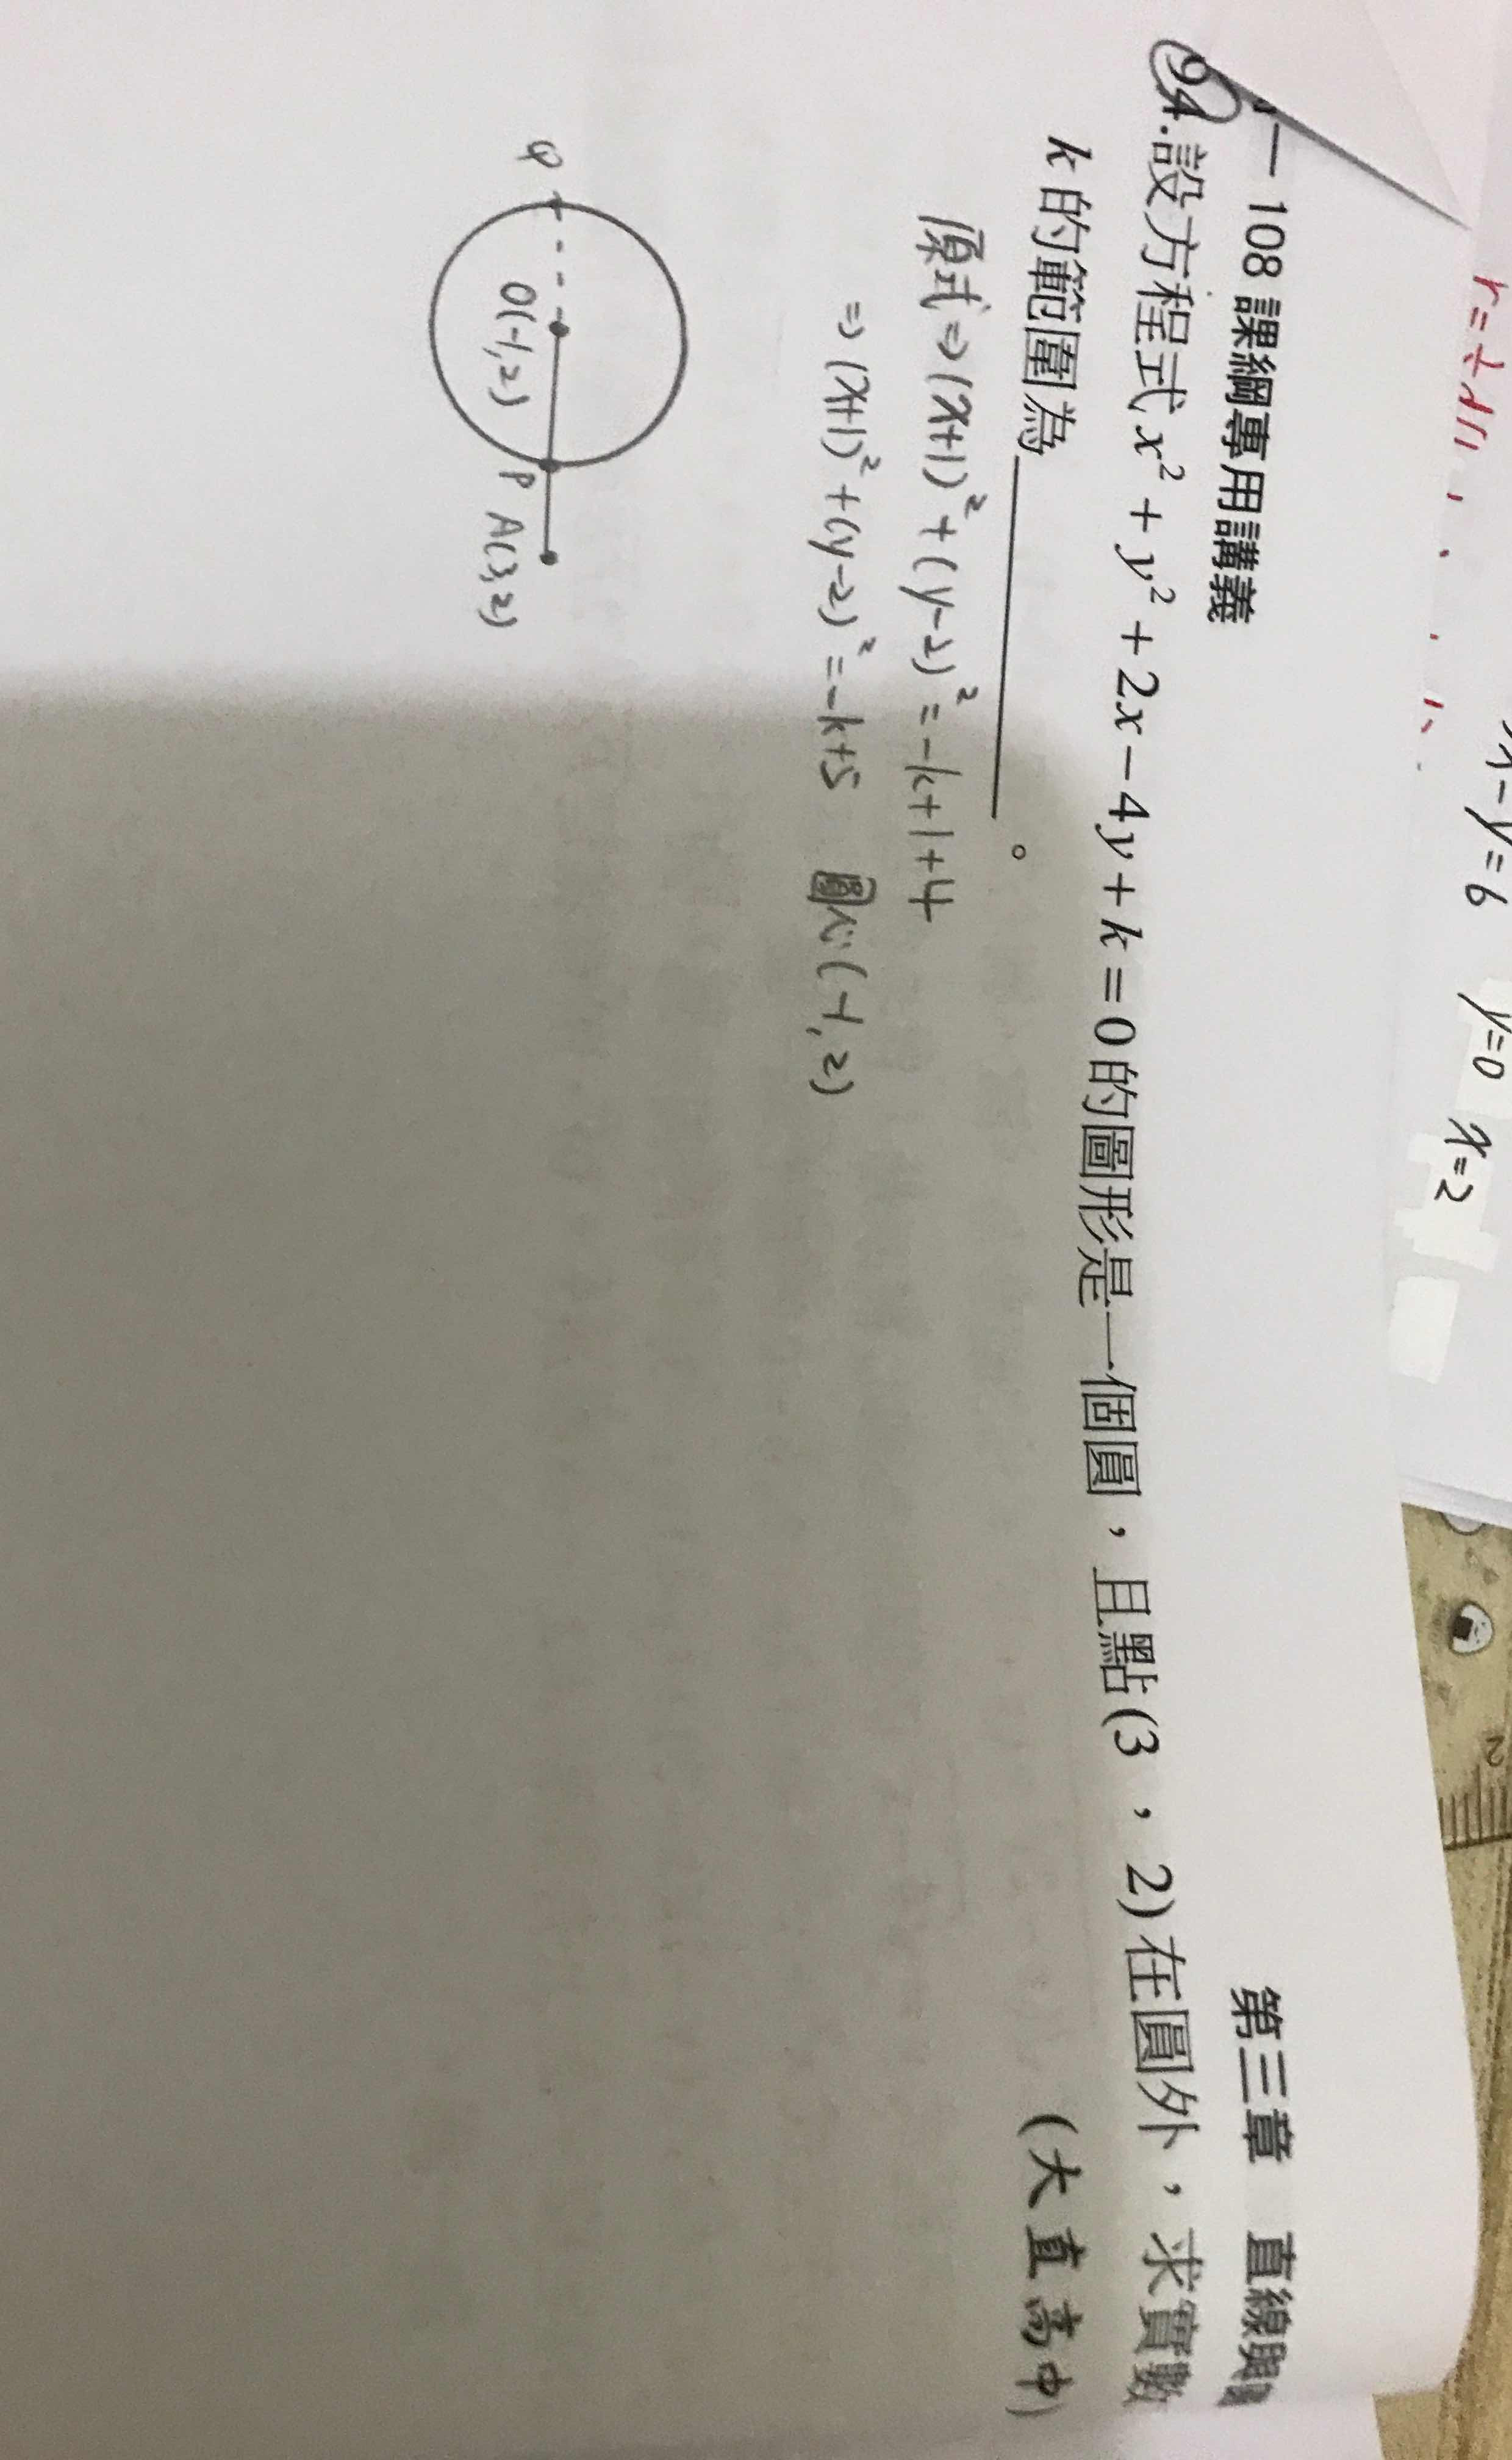 x-y=6 y=0 x=2
一 108 課綱專用講義 第三章 直線與
94.設方程式 x² + y² + 2x − 4y + k = 0 的圖形是一個圓，且點(3，2)在圓外，求實數
k 的範圍為＿＿＿＿＿＿。 (大直高中)
原式⇒(x+1)²+(y-2)²=-k+1+4
⇒(x+1)²+(y-2)²=-k+5 圓心(-1,2)
Q
O(-1,2)
P
A(3,2)
2